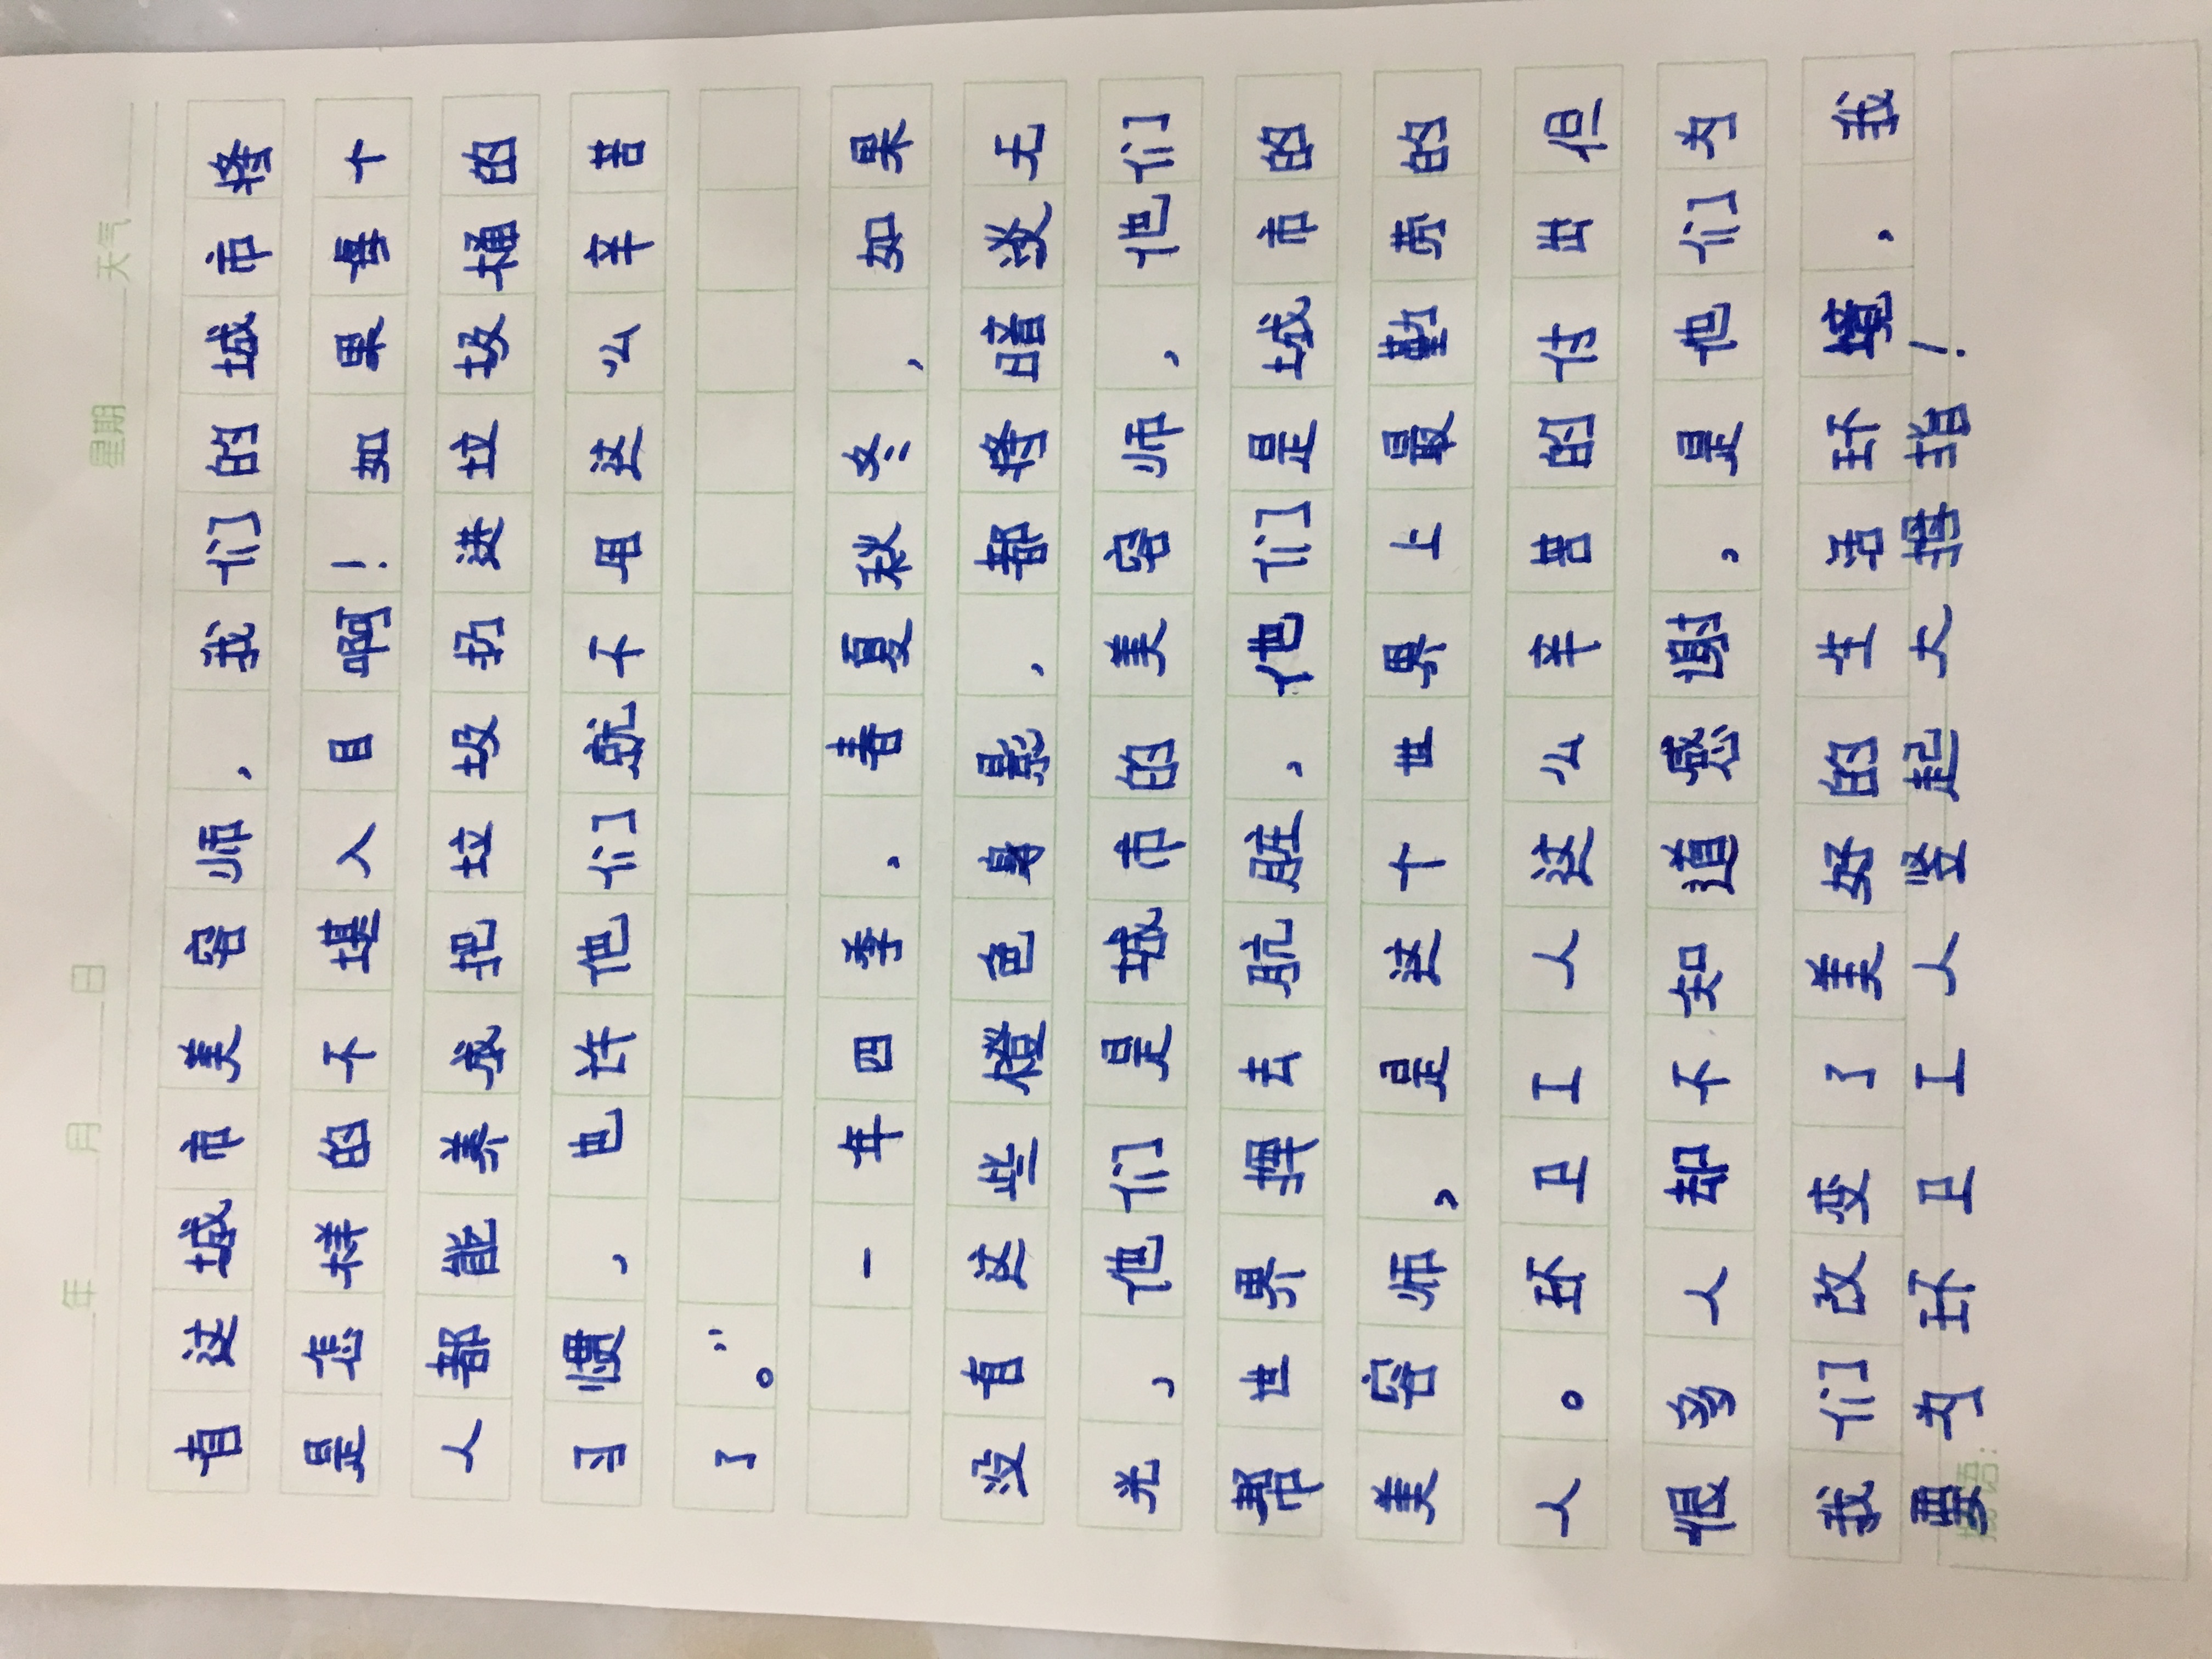 年 月 日 星期 天气
有这城市美容师，我们的城市将
是怎样的不堪人目啊！如果每个
人都能养成把垃圾扔进垃圾桶的
习惯，也许他们就不用这么辛苦
了。”
一年四季，春夏秋冬，如果
没有这些橙色身影，都将暗淡无
光，他们是城市的美容师，他们
帮世界挥去肮脏，他们是城市的
美容师，是这个世界上最勤劳的
人。环卫工人这么辛苦的付出但
很多人却不知道感谢，是他们为
我们改变了美好的生活环境，我
要为环卫工人竖起大拇指！